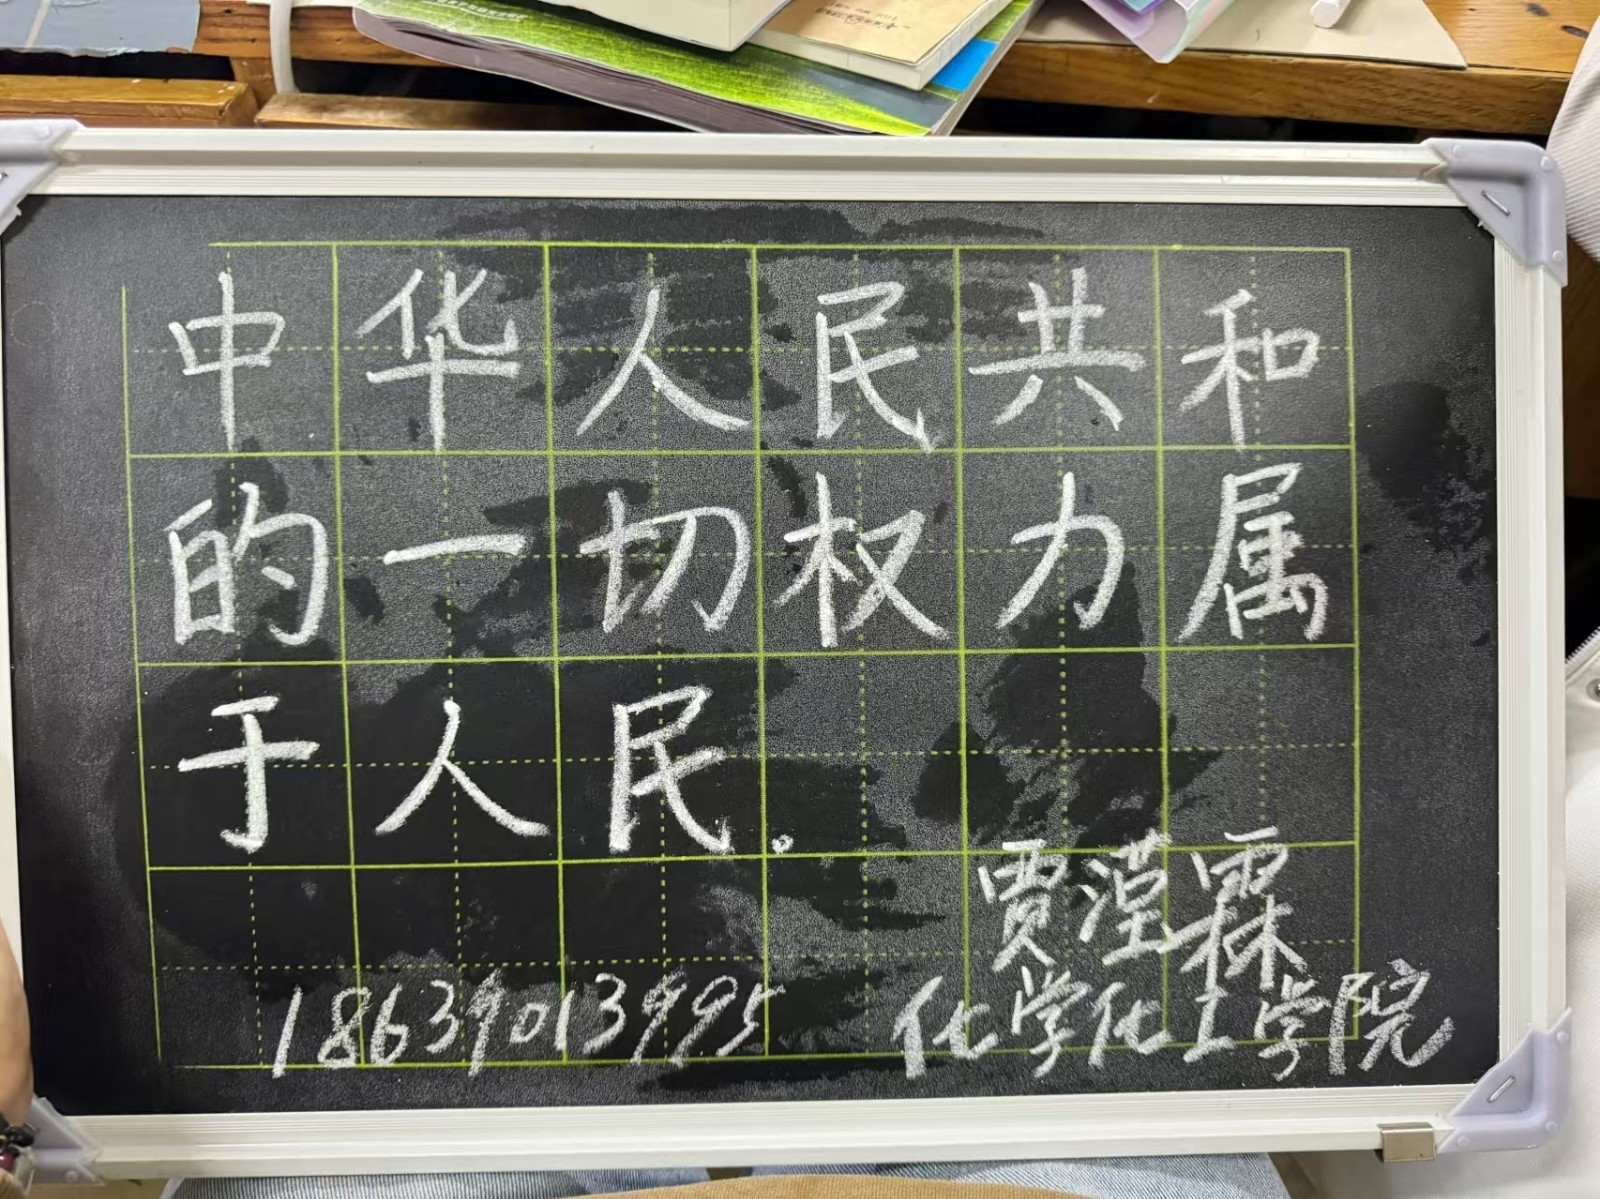 中华人民共和
的一切权力属
于人民。
贾滢霖
18639013995
化学化工学院